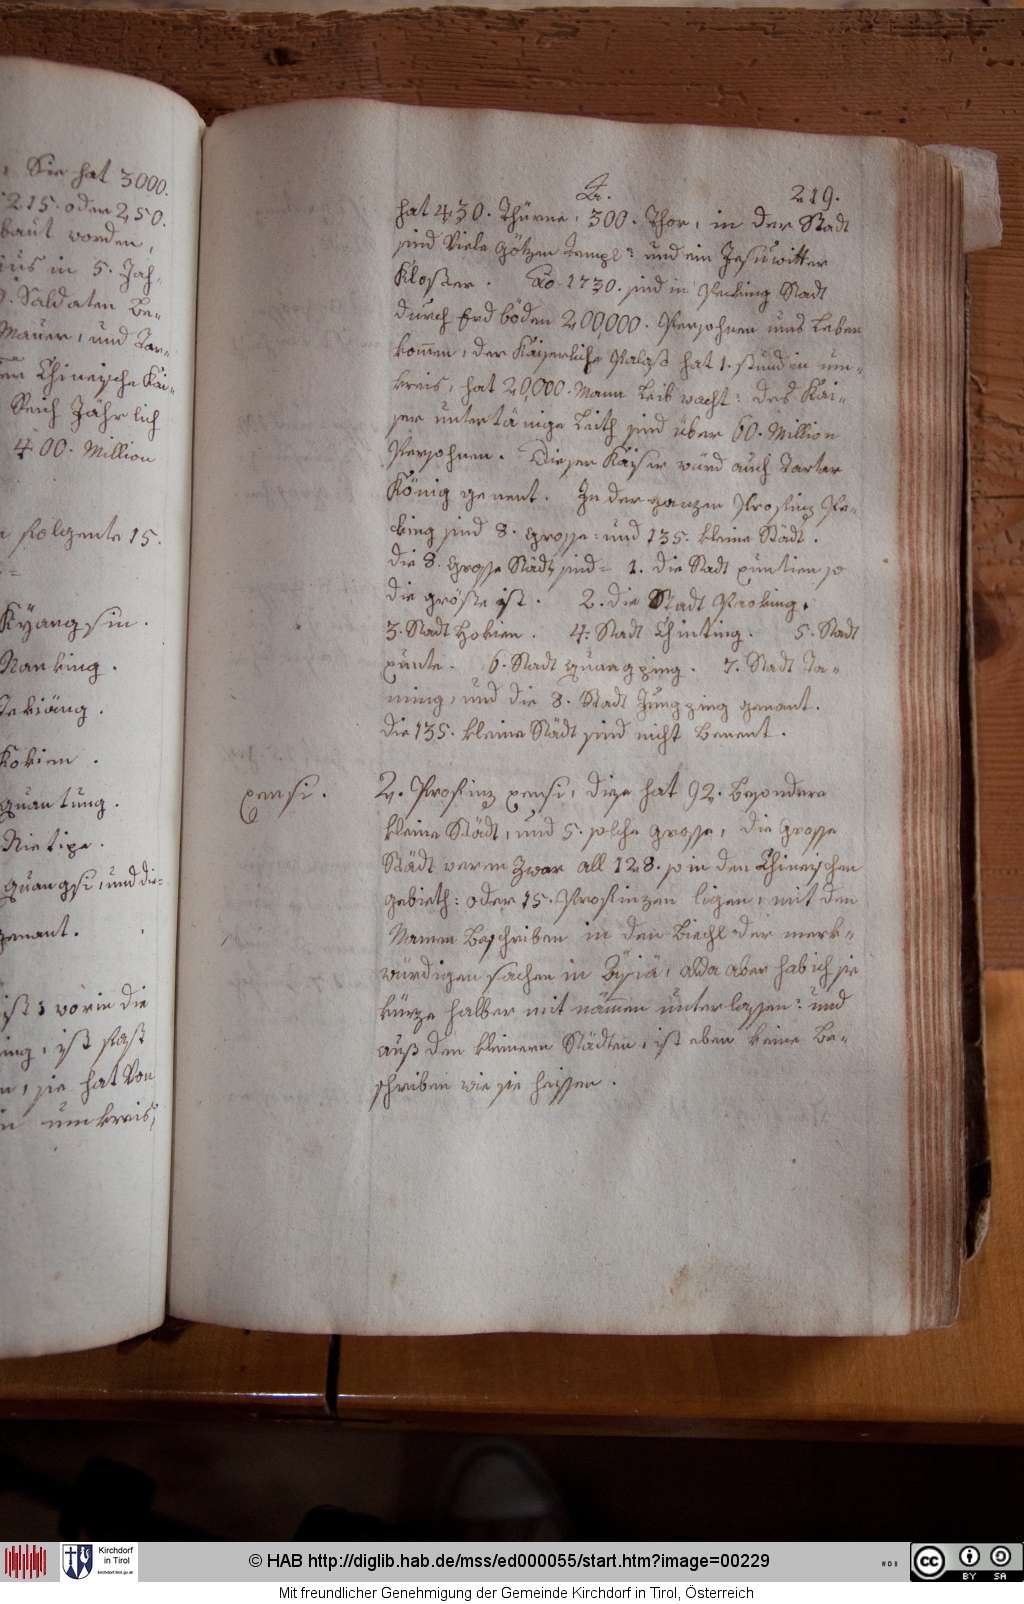 , Sie hat 3000.
215. oder 250.
baut worden,
ius in 5. Jah-
0. Saldaten be-
Mauer, und Tar-
en Chinesische Kai-
Reich Jährlich
400. Million
folgente 15.
Kÿangsin.
Nanking.
Tekiäng.
Fokien.
Quantung.
Quangsi, und die-
genant.
ist, worin die
ing, ist fast
n, sie hat von
in umkreis,
A. 219.
hat 430. Thürne, 300. Thor, in der Stadt
sind Viele Götzen Templ: und ein Jesuwitter
Kloster. Ao 1730. sind in Pecking Stadt
durch Erdböden 200000. Persohnen ums Leben
kommen, der Kaiserliche Palast hat 1. stund in um-
kreis, hat 20,000. Mann Leib wacht: des Kai-
ser untertänige Leith sind über 60. Million
Persohnen. Dieser Kaiser würd auch Tarter
König genent. In der ganzen Profinz Pe-
cking sind 8. grosse: und 135. kleine Städt.
die 8. Grosse Städt sind= 1. die Stadt xuntien so
die gröste ist. 2. die Stadt Paoking,
3. Stadt Hokien. 4: Stadt Chinting. 5. Stadt
xunte. 6. Stadt Quangping. 7. Stadt Ta-
ming, und die 8. Stadt Jungping genant.
die 135. kleine Städt sind nicht benent.
xensi. 2. Profinz xensi, dize hat 92. besondere
kleine Städt, und 5. solche grosse, die grosse
Städt weren zwar all 128. so in den Chinesischen
gebieth: oder 15. Profinzen ligen, mit den
Namen beschriben in den Biechl der merk-
würdigen sachen in Asiä, alda aber hab ich sie
kürze halber mit nämen unterlassen: und
auß den kleinern Städten, ist eben keine be-
schriben wie sie heissen.
© HAB http://diglib.hab.de/mss/ed000055/start.htm?image=00229
Kirchdorf
in Tirol
kirchdorf.tirol.gv.at
WDB
cc BY SA
Mit freundlicher Genehmigung der Gemeinde Kirchdorf in Tirol, Österreich